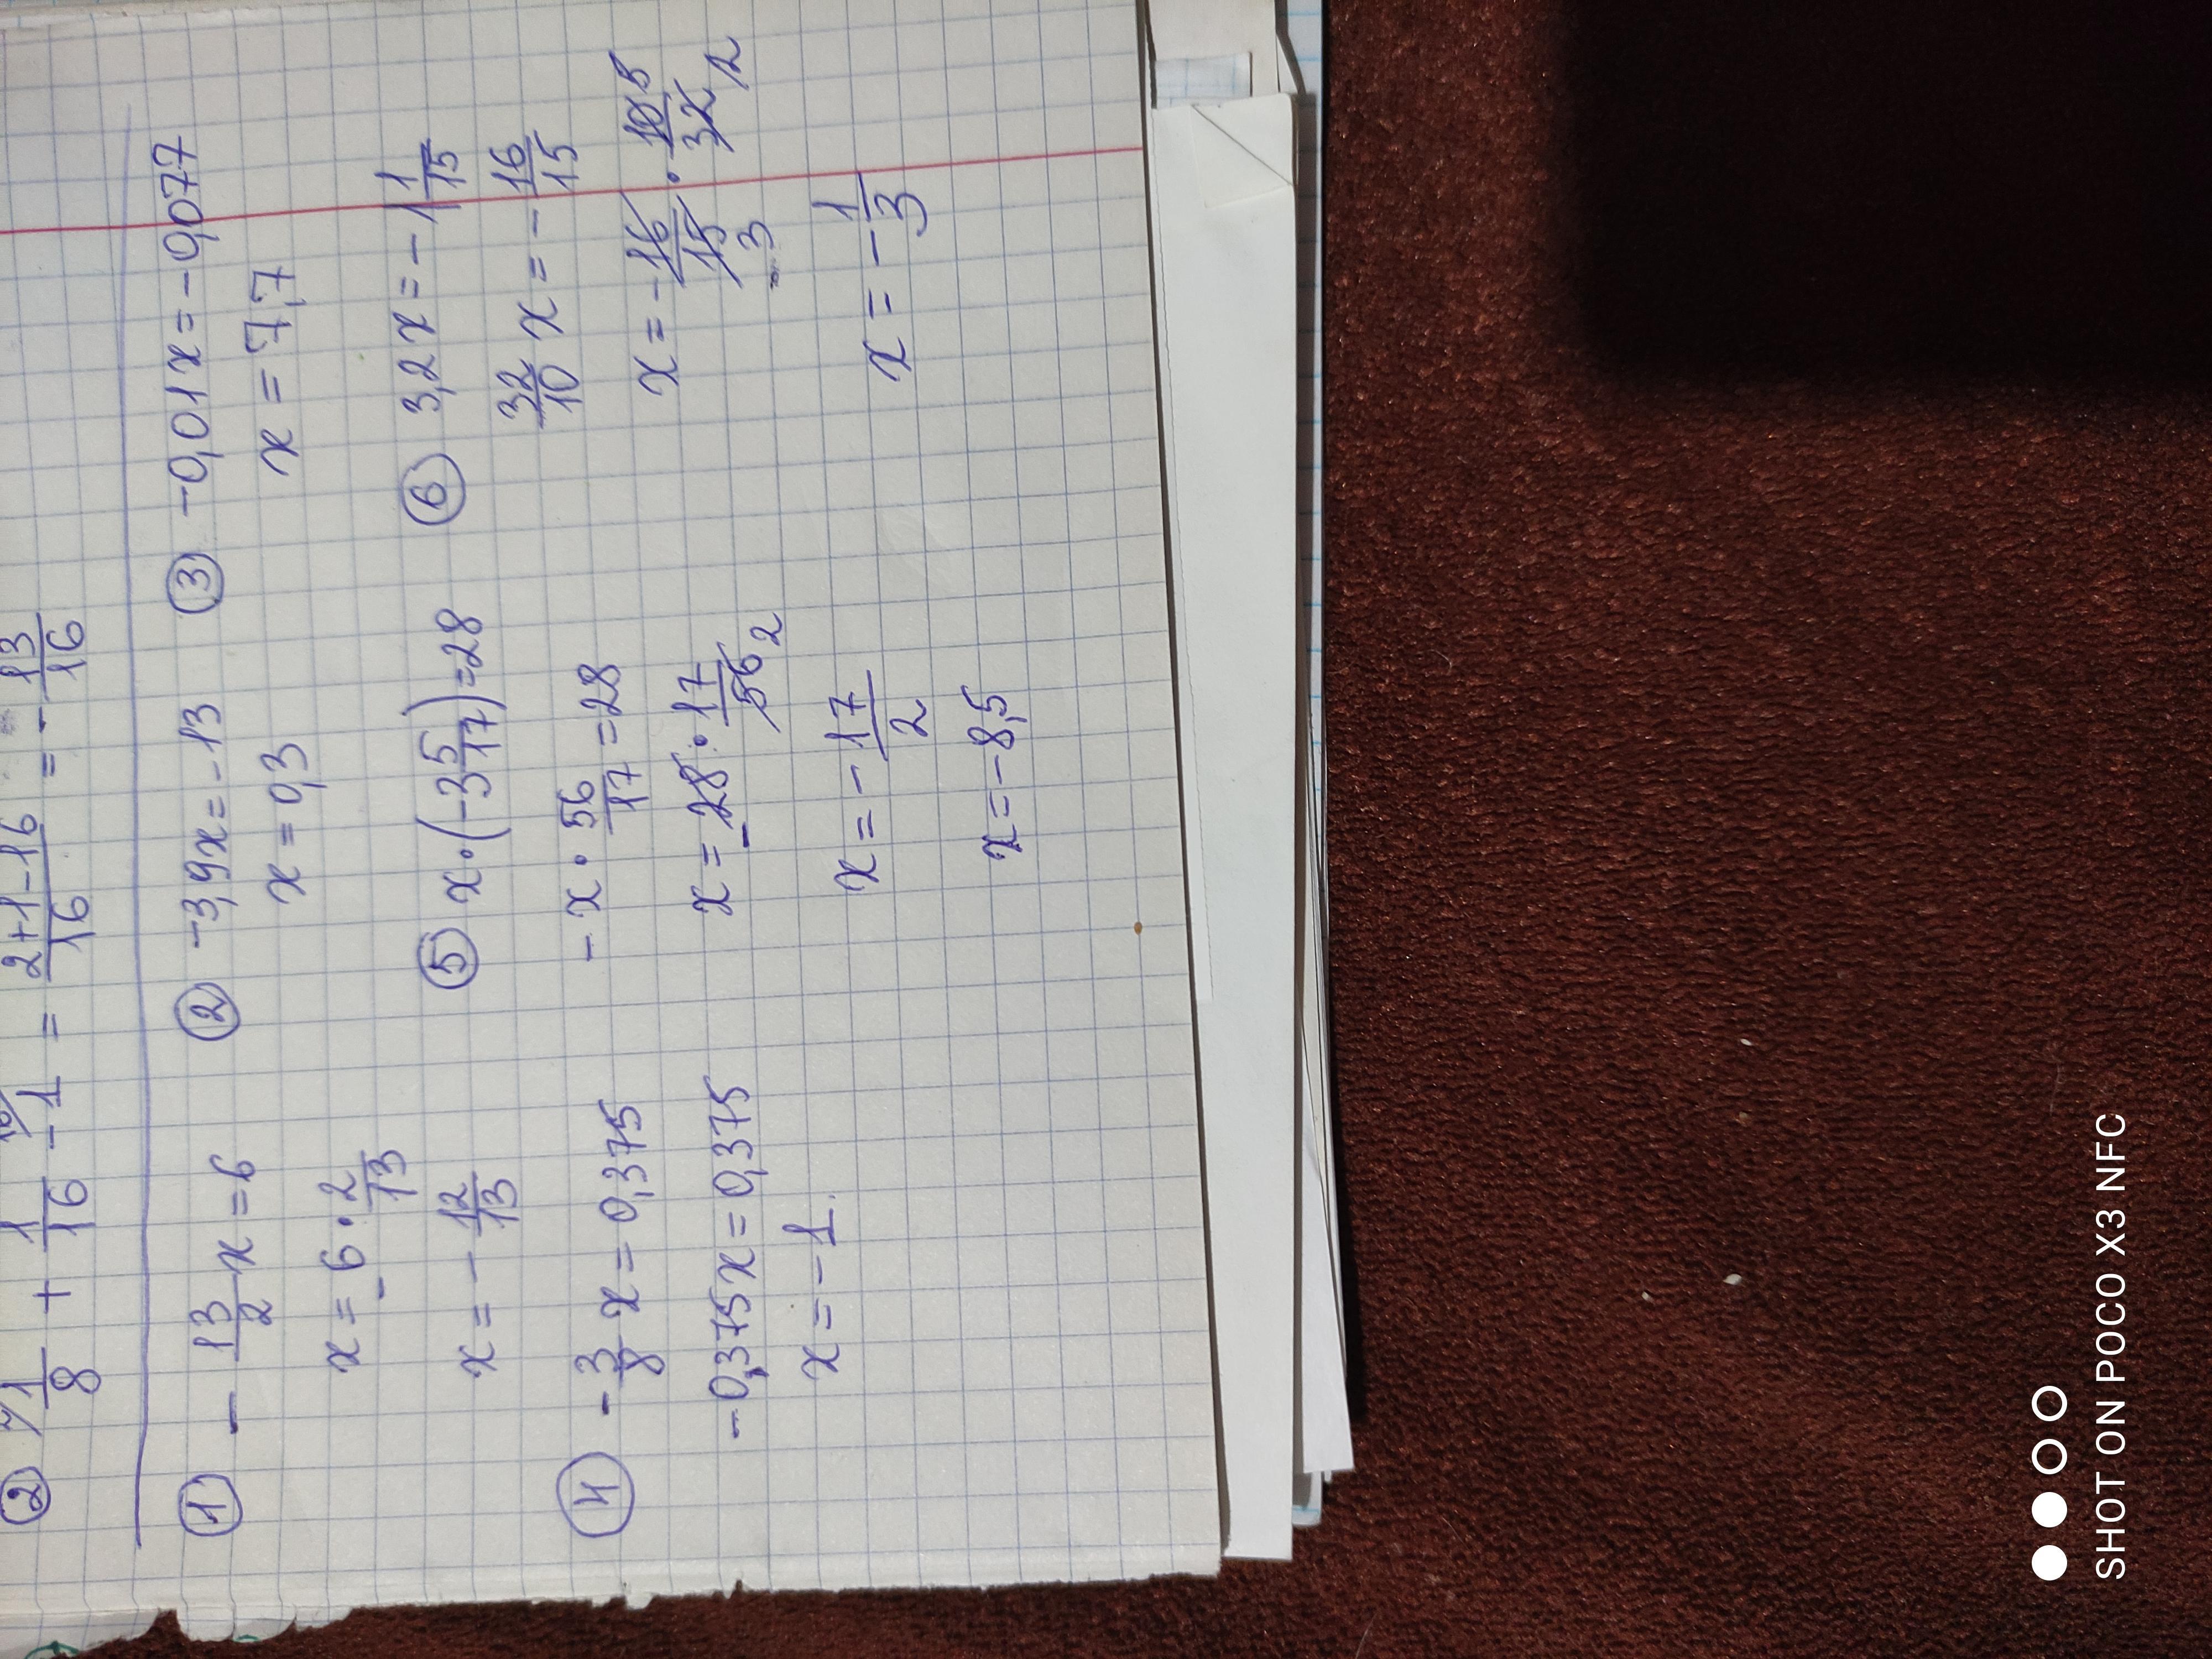 ② 1/8 + 1/16 - 1 = (2+1-16)/16 = - 13/16
① - 13/2 x = 6
x = - 6 · 2/13
x = - 12/13
② -3,9x = -13
x = 0,3
③ -0,01x = -0,077
x = 7,7
④ - 3/8 x = 0,375
-0,375x = 0,375
x = -1.
⑤ x · (-3 5/17) = 28
- x · 56/17 = 28
x = - 28 · 17/56 2
x = - 17/2
x = -8,5
⑥ 3,2x = - 1 1/15
32/10 x = - 16/15
x = - 16/15 · 10/32
3 2
x = - 1/3
SHOT ON POCO X3 NFC